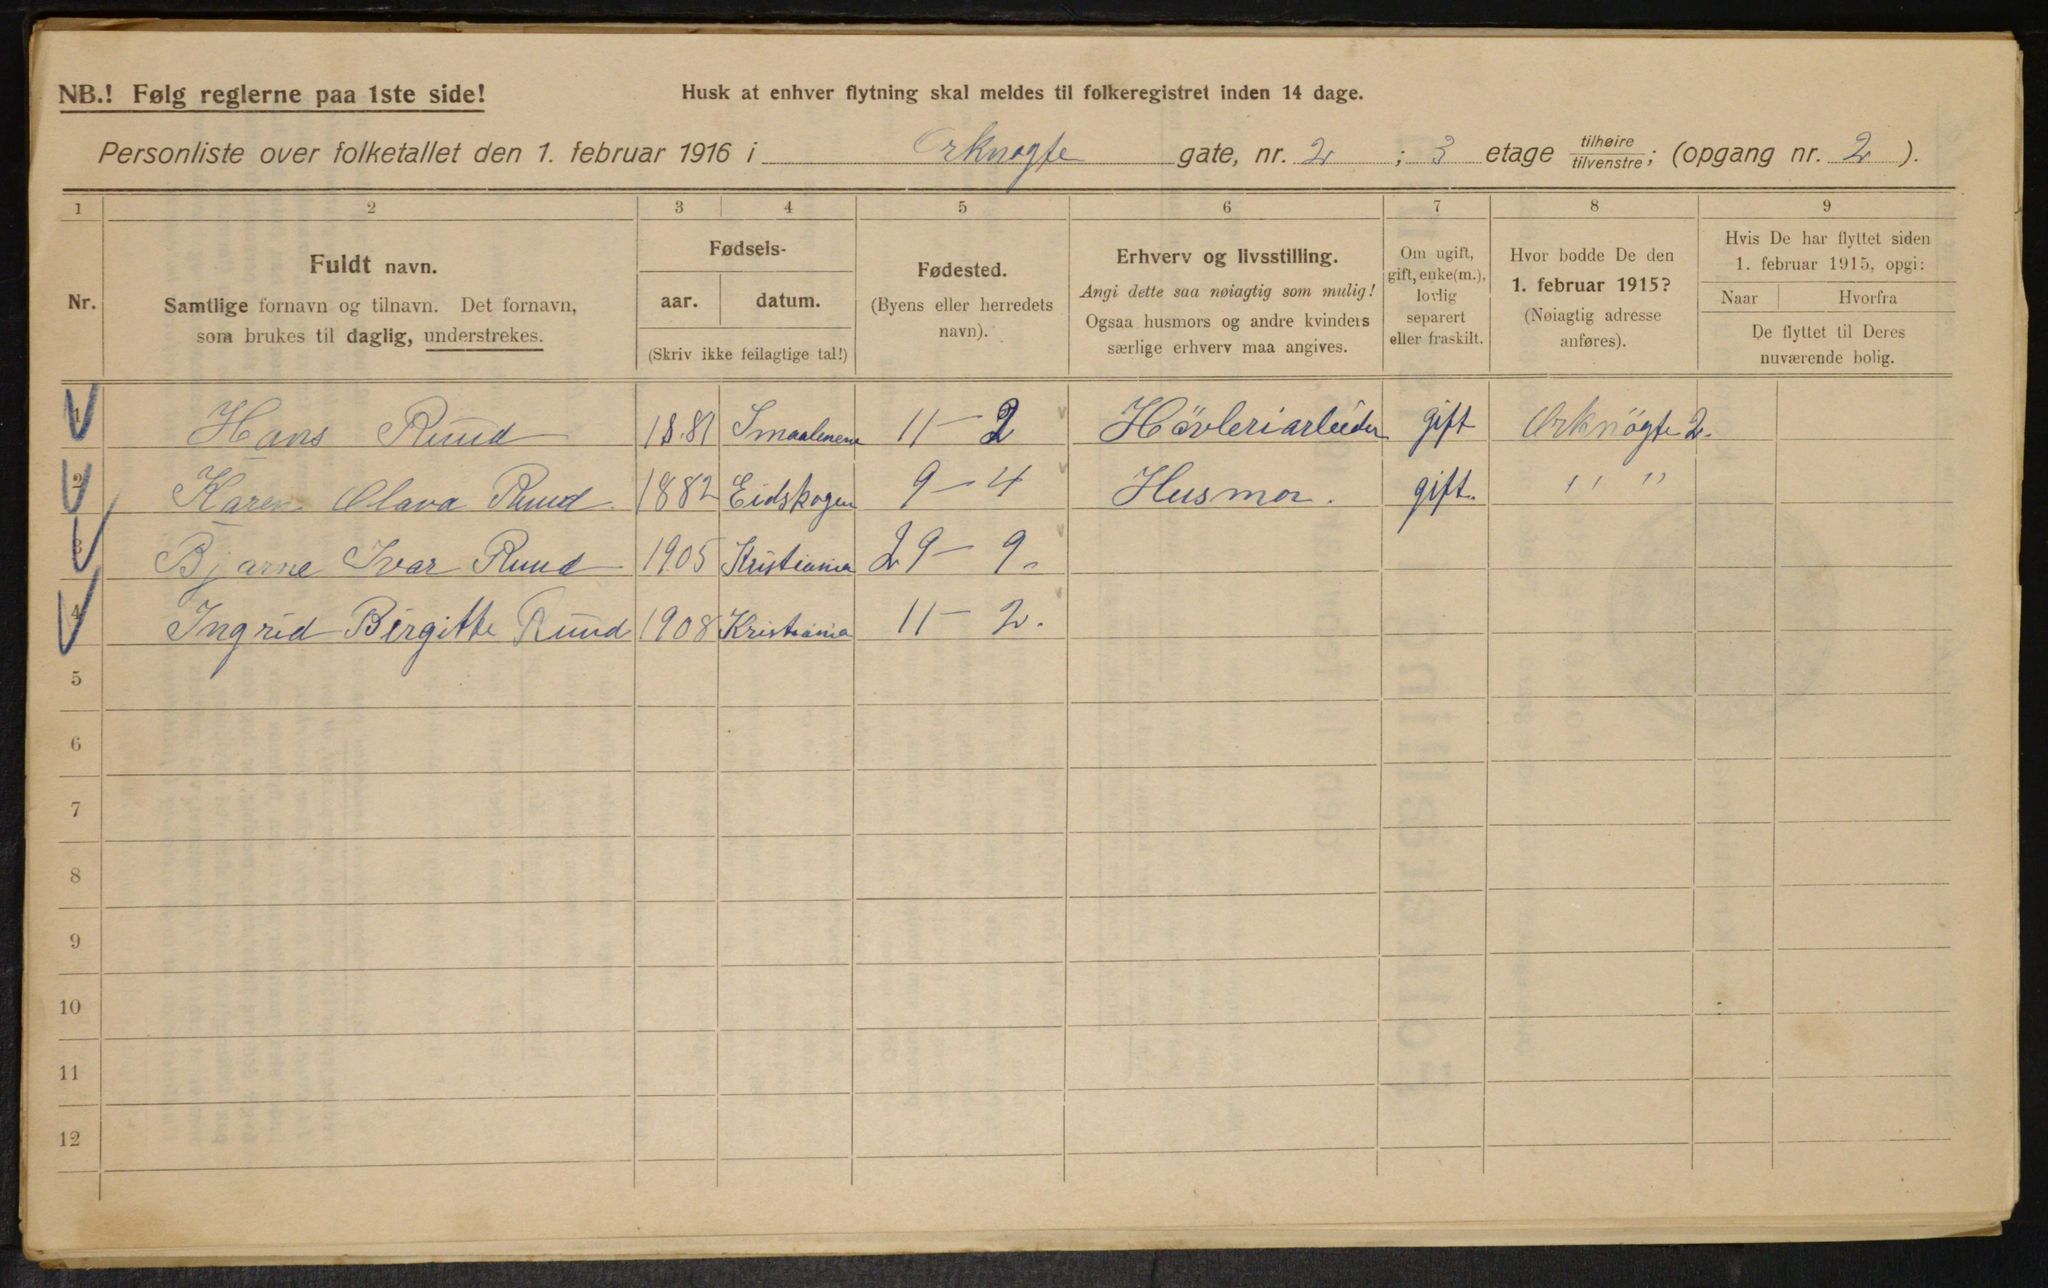 NB.! Følg reglerne paa 1ste side!
Husk at enhver flytning skal meldes til folkeregistret inden 14 dage.
Personliste over folketallet den 1. februar 1916 i Orknøgte gate, nr. 2 ; 3 etage tilhøire/tilvenstre; (opgang nr. 2 ).
1 2 3 4 5 6 7 8 9
Nr.
Fuldt navn.
Samtlige fornavn og tilnavn. Det fornavn,
som brukes til daglig, understrekes.
Fødsels-
aar. datum.
(Skriv ikke feilagtige tal!)
Fødested.
(Byens eller herredets
navn).
Erhverv og livsstilling.
Angi dette saa nøiagtig som mulig!
Ogsaa husmors og andre kvinders
særlige erhverv maa angives.
Om ugift,
gift, enke(m.),
lovlig
separert
eller fraskilt.
Hvor bodde De den
1. februar 1915?
(Nøiagtig adresse
anføres).
Hvis De har flyttet siden
1. februar 1915, opgi:
Naar Hvorfra
De flyttet til Deres
nuværende bolig.
1 Hans Ruud 1881 Smaalenene 11 - 2 Hövleriarbeider gift Orknögte 2.
2 Karen Olava Ruud 1882 Eidskogen 9 - 4 Husmor. gift. " "
3 Bjarne Ivar Ruud 1905 Kristiania 29 - 9.
4 Ingrid Birgitte Ruud 1908 Kristiania 11 - 2.
5
6
7
8
9
10
11
12